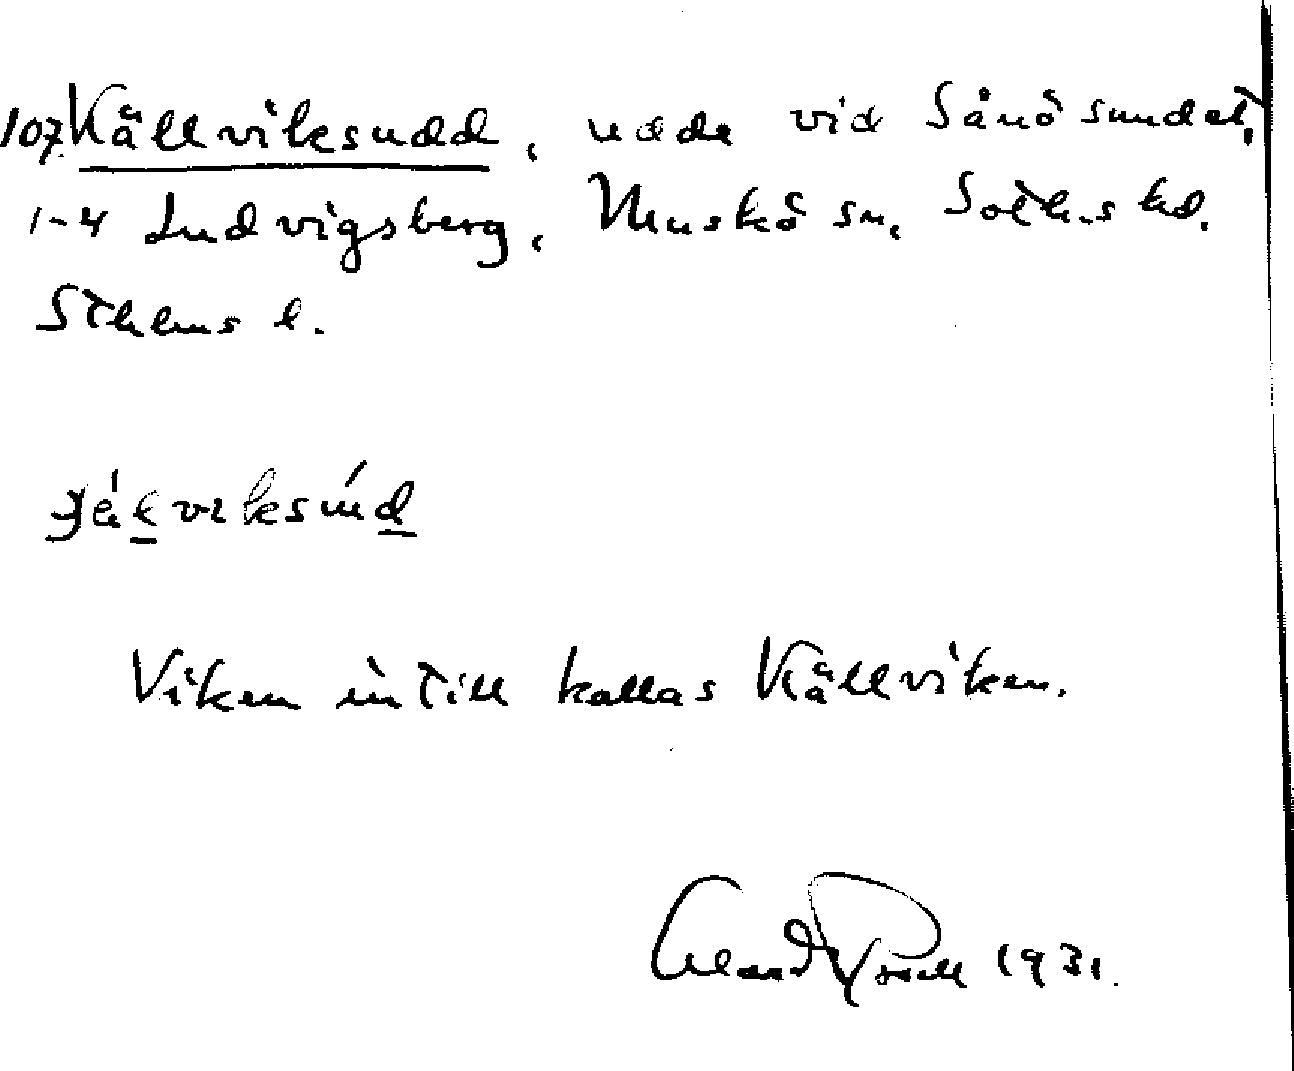 107. Källviksudd, udde vid Sånösundet,
1-4 Ludvigsberg, Muskö sn, Soth.s hd.
Sthlms l.
Viken intill kallas Källviken.
1931.